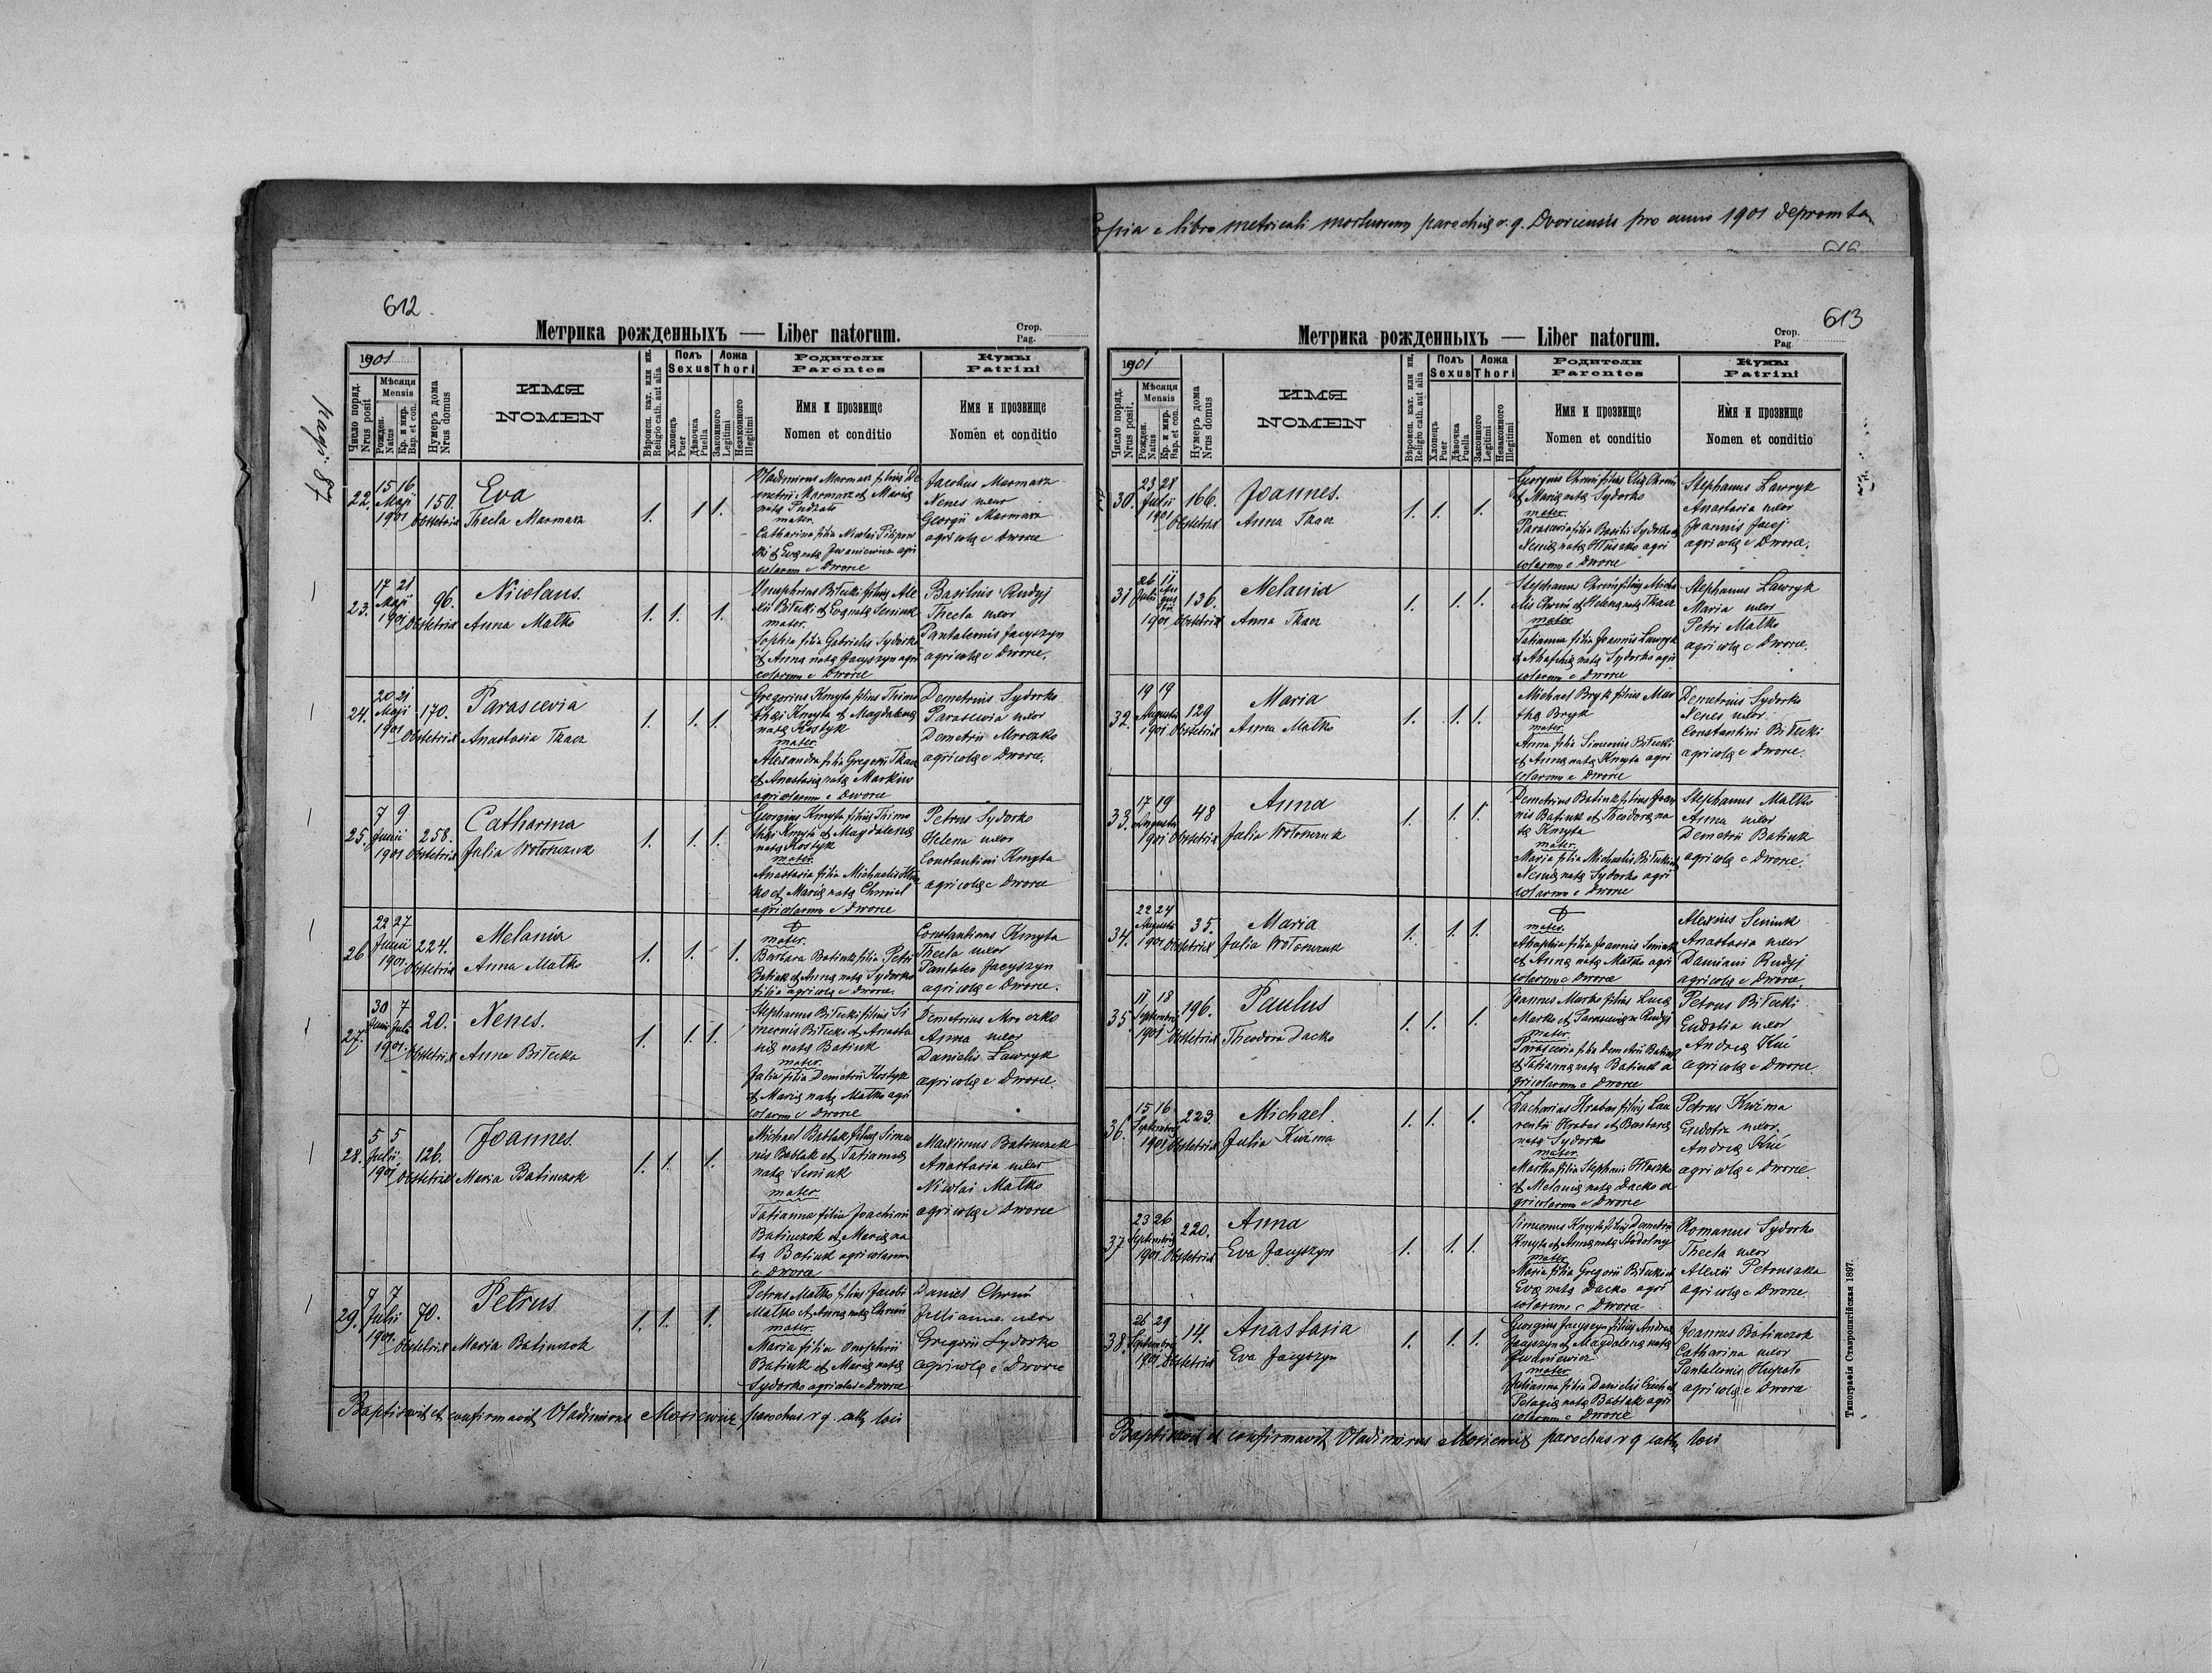 Copia e libro metricali mortuorum parochiæ r. g. Dvoriensis pro anno 1901 depromta
616
612
Метрика рожденныхъ — Liber natorum.
Стор.
Pag.
pag: 87
1901
Число поряд.
Nrus posit
Мѣсяця
Mensis
Рожден.
Natus
Кр. и мир.
Bap. et con.
Нумеръ дома
Nrus domus
ИМЯ
NOMEN
Вѣроисп. кат. или ин.
Religio cath. aut alia
Полъ
Sexus
Хлопецъ
Puer
Дѣвочка
Puella
Ложа
Thori
Законного
Legitimi
Незаконного
Illegitimi
Родители
Parentes
Имя и прозвище
Nomen et conditio
Кумы
Patrini
Имя и прозвище
Nomen et conditio
22. 15 16 Maji 1901 150.
Eva
Obstetrix Thecla Marmasz
1. 1 1.
Vladimirus Marmasz filius De
metrii Marmasz et Mariæ
natæ
mater
Catharina filia Nicolai
et Evæ natæ Iwaniewicz agri
colarum e Dworce
Jacobus Marmasz
Nenes uxor
Georgii Marmasz
agricolæ e Dworce
23. 17 21 Maji 1901 96.
Nicolaus.
Obstetrix Anna Matko
1. 1. 1.
Onuphrius Biłecki filius Ale
xii Biłecki et Evæ natæ Seniuk
mater.
Sophia filia Gabrielis Sydorko
et Annæ natæ Jacyszyn agri
colarum e Dworce
Basilius Rudyj
Thecla uxor
Pantaleonis Jacyszyn
agricolæ e Dworce.
24. 20 21 Maji 1901 170.
Parascevia
Obstetrix Anastasia Tkacz
1. 1. 1.
Gregorius Kmyta filius Thimo
thæi Kmyta et Magdalenæ
natæ Kostyk
mater
Alexandra filia Gregorii Tkacz
et Anastasiæ natæ Markiw
agricolarum e Dworce
Demetrius Sydorko
Parascevia uxor
Demetrii Mroczko
agricolæ e Dworce.
25. 7 9 Junii 1901 258.
Catharina
Obstetrix Julia Wołoszczuk
1. 1. 1.
Georgius Kmyta filius Thimo
thæi Kmyta et Magdalenæ
natæ Kostyk
mater
Anastasia filia Michaelis
et Mariæ natæ Chmiel
agricolarum e Dworce
Petrus Sydorko
Helena uxor
Constantini Kmyta
agricolæ e Dworce
26 22 27 Junii 1901. 224.
Melania
Obstetrix Anna Matko
1. 1. 1.
mater.
Barbara Batiuk filia Petri
Batiuk et Annæ natæ Sydorko
filia agricolæ e Dworce.
Constantinus Kmyta
Thecla uxor
Pantaleo Jacyszyn
agricolæ e Dworce.
27. 30 7 Junii Julii 1901. 20.
Nenes.
Obstetrix Anna Biłecka
1. 1. 1.
Stephanus Biłecki filius Si
meonis Biłecki et Anasta
siæ natæ Batiuk
mater
Julia filia Demetrii Kostyk
et Mariæ natæ Matko agri
colarum e Dworce
Demetrius Mroczko
Anna uxor
Danielis Ławryk
agricolæ e Dworce.
28. 5 5 Julii 1901 126.
Joannes.
Obstetrix Maria Batinczok
1. 1. 1.
Michael Bablak filius Simeo
nis Bablak et Tatiannæ
natæ Seniuk
mater.
Tatianna filia Joachimi
Batinczok et Mariæ na
tæ Batiuk agricolarum
e Dworce
Maximus Batinczok
Anastasia uxor
Nicolai Matko
agricolæ e Dworce
29. 7 7 Julii 1901. 70.
Petrus
Obstetrix Maria Batinczok
1. 1. 1.
Petrus Matko filius Jacobi
Matko et Annæ natæ Chruń
mater.
Maria filia Onuphrii
Batiuk et Mariæ natæ
Sydorko agricolarum e Dworce
Daniel Chruń
Julianna uxor
Gregorii Sydorko
agricolæ e Dworce
Baptisavit et confirmavit Vladimirus Mosiewicz parochus r g. cath loci
613
Метрика рожденныхъ — Liber natorum.
Стор.
Pag.
1901
Число поряд.
Nrus posit.
Мѣсяця
Mensis
Рожден.
Natus
Кр. и мир.
Bap. et con.
Нумеръ дома
Nrus domus
ИМЯ
NOMEN
Вѣроисп. кат. или ин.
Religio cath. aut alia
Полъ
Sexus
Хлопецъ
Puer
Дѣвочка
Puella
Ложа
Thori
Законного
Legitimi
Незаконного
Illegitimi
Родители
Parentes
Имя и прозвище
Nomen et conditio
Кумы
Patrini
Имя и прозвище
Nomen et conditio
30. 23 28 Julii 1901 166.
Joannes.
Obstetrix Anna Tkacz
1. 1. 1.
Georgius Chruń filius Eliæ Chruń
et Mariæ natæ Sydorko
mater.
Parascevia filia Basilii Sydorko et
Neniæ natæ Hłuszko agri
colarum e Dworce
Stephanus Ławryk
Anastasia uxor
Joannis Jacyj
agricolæ e Dworce.
31 26 11 Julii Augusti 1901 136.
Melania
Obstetrix Anna Tkacz
1. 1. 1.
Stephanus Chruń filius Micha
elis Chruń et Helenæ natæ Tkacz
mater
Tatianna filia Joannis Ławryk
et Ahaphiæ natæ Sydorko agri
colarum e Dworce
Stephanus Ławryk
Maria uxor
Petri Matko
agricolæ e Dworce.
32. 19 19 Augusti 1901 129
Maria
Obstetrix Anna Matko
1. 1. 1.
Michael Bryk filius Mar
thæ Bryk
mater
Anna filia Simeonis Biłecki
et Annæ natæ Kmyta agri
colarum e Dworce
Demetrius Sydorko
Nenes uxor
Constantini Biłecki
agricolæ e Dworce.
33. 17 19 Augusti 1901 48
Anna
Obstetrix Julia Wołoszczuk
1. 1. 1.
Demetrius Batiuk filius Joan
nis Batiuk et Theodoræ na
tæ Kmyta
mater.
Maria filia Michaelis Biłecki et
Neniæ natæ Sydorko agri
colarum e Dworce
Stephanus Matko
Anna uxor
Demetrii Batiuk
agricolæ e Dworce.
34. 22 24 Augusti 1901 35.
Maria
Obstetrix Julia Wołoszczuk
1. 1. 1.
mater.
Ahaphia filia Joannis Seniuk
et Annæ natæ Matko agri
colarum e Dworce
Alexius Seniuk
Anastasia uxor
Damiani Rudyj
agricolæ e Dworce.
35. 11 18 Septembris 1901 196.
Paulus
Obstetrix Theodora Dacko
1. 1. 1.
Joannes Marko filius Lucæ
Marko et Parasceviæ Rudyj
mater
Parascevia filia Demetrii Batiuk
et Tatiannæ natæ Batiuk a
gricolarum e Dworce
Petrus Biłecki
Eudotia uxor
Andreæ Kuć
agricolæ e Dworce.
36. 15 16 Septembris 1901 223.
Michael.
Obstetrix Julia Kuźma
1. 1. 1.
Zacharias Hrabar filius Lau
rentii Hrabar et Barbaræ
natæ Sydorko
mater
Martha filia Stephani Hłuszko
et Melaniæ natæ Dacko a
gricolarum e Dworce
Petrus Kuźma
Eudotia uxor.
Andreæ Kuć
agricolæ e Dworce.
37 23 26 Septembris 1901. 220.
Anna
Obstetrix Eva Jacyszyn
1. 1. 1.
Simeonus Kmyta filius Demetrii
Kmyta et Annæ natæ Stodolny
mater
Maria filia Gregorii Biłecki et
Evæ natæ Dacko agri
colarum e Dworce
Romanus Sydorko
Thecla uxor
Alexii Petruszka
agricolæ e Dworce.
38. 26 29 Septembris 1901. 14.
Anastasia
Obstetrix Eva Jacyszyn
1. 1. 1.
Georgius Jacyszyn filius Andreæ
Jacyszyn et Magdalenæ natæ
Iwaniewicz
mater
Julianna filia Danielis Czich et
Pelagiæ natæ Bablak agri
colarum e Dworce
Joannes Batinczok
Catharina uxor
Pantaleonis
agricolæ e Dworce
Baptisavit et confirmavit Vladimirus Mosiewicz parochus r g cath loci
Типографія Ставропигійская 1897.